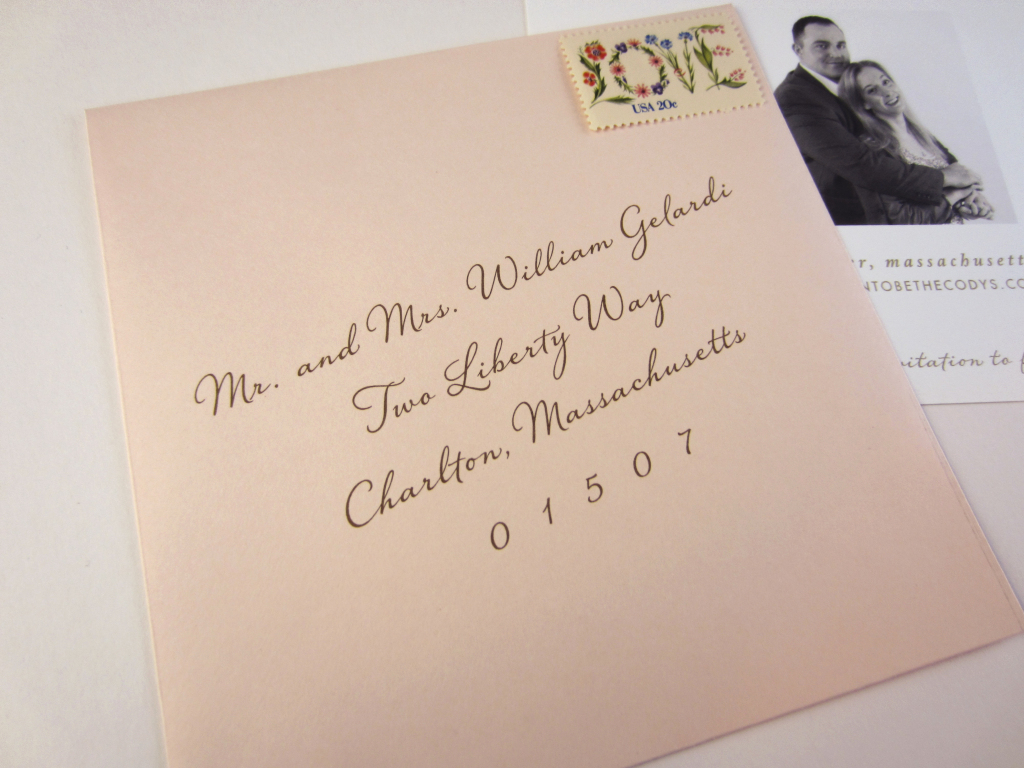 LOVE
USA 20c
Mr. and Mrs. William Gelardi
Two Liberty Way
Charlton, Massachusetts
0 1 5 0 7
massachusett
NTOBETHECODYS.CO
vitation to f